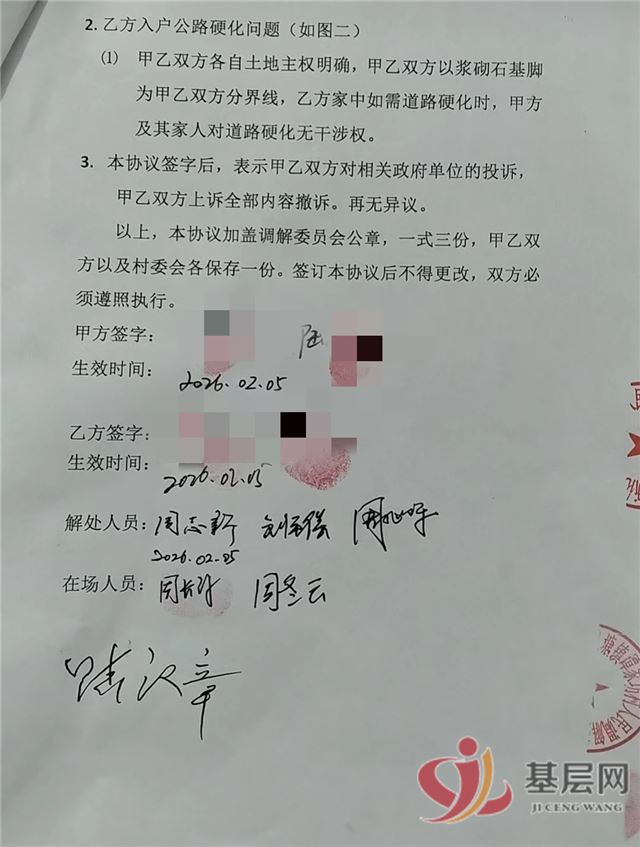 2. 乙方入户公路硬化问题（如图二）
⑴ 甲乙双方各自土地主权明确，甲乙双方以浆砌石基脚
为甲乙双方分界线，乙方家中如需道路硬化时，甲方
及其家人对道路硬化无干涉权。
3. 本协议签字后，表示甲乙双方对相关政府单位的投诉，
甲乙双方上诉全部内容撤诉。再无异议。
以上，本协议加盖调解委员会公章，一式三份，甲乙双
方以及村委会各保存一份。签订本协议后不得更改，双方必
须遵照执行。
甲方签字： 陆
生效时间： 2026.02.05
乙方签字：
生效时间： 2026.02.05
解处人员：周志新
2026.02.05
在场人员： 周冬云
基层网
JI CENG WANG